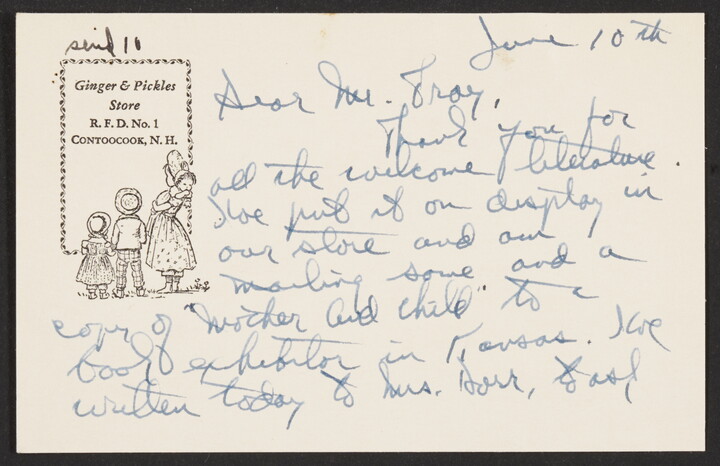 send 10
June 10th
Ginger & Pickles
Store
R. F. D. No. 1
CONTOOCOOK, N. H.
Dear Mr. Fray,
Thank you for
all the welcome literature.
I've put it on display in
our store and am
mailing some and a
copy of "Mother and Child" to a
book exhibitor in Kansas. I've
written today to Mrs. Dorr, to ask